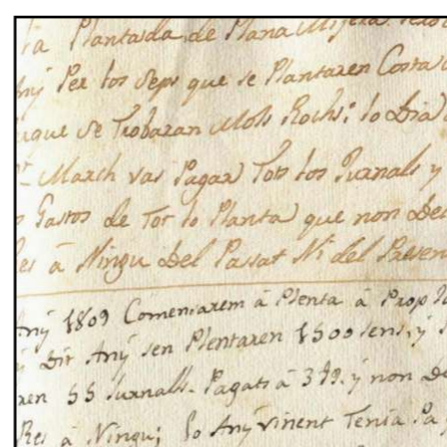 ia Plantada de Plana
Añy Per los Seps que se Plantaren Costa
que se Trobaran Mols Rochs: lo Dia
March vas Pagar Tots los Jurnals y
Gastos de Tot lo Planta que non Deu
Res â Ningu Del Passat Ni del Preven
Añy 1809 Comensarem â Plenta â Prop
Dit Añy sen Plentaren 1500 sens, y
ren 55 Jurnalls. Pagats â y non De
Res â Ningu; lo Añy vinent Tenia Pa